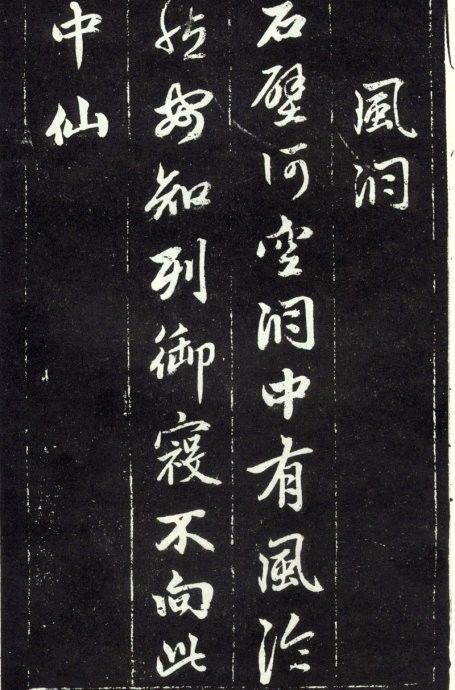 風洞
石壁何空洞中有風泠
然安知列御寇不向此
中仙